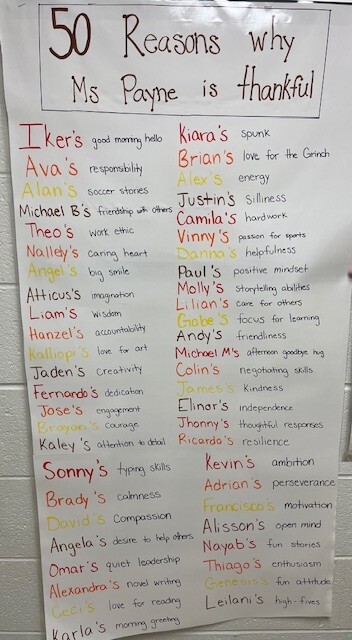 50 Reasons why
Ms Payne is thankful
Iker's good morning hello
Ava's responsibility
Alan's soccer stories
Michael B's friendship with others
Theo's work ethic
Nalley's caring heart
Angel's big smile
Atticus's imagination
Liam's wisdom
Hanzel's accountability
Kalliopi's love for art
Jaden's creativity
Fernando's dedication
Jose's engagement
Brayan's courage
Kaley's attention to detail
Kiara's spunk
Brian's love for the Grinch
Alex's energy
Justin's silliness
Camila's hardwork
Vinny's passion for sports
Danna's helpfulness
Paul's positive mindset
Molly's storytelling abilities
Lilian's care for others
Gabe's focus for learning
Andy's friendliness
Michael M's afternoon goodbye hug
Colin's negotiating skills
James's kindness
Elinor's independence
Jhonny's thoughtful responses
Ricardo's resilience
Sonny's typing skills
Brady's calmness
David's compassion
Angela's desire to help others
Omar's quiet leadership
Alexandra's novel writing
Ceci's love for reading
Karla's morning greeting
Kevin's ambition
Adrian's perseverance
Francisco's motivation
Alisson's open mind
Nayab's fun stories
Thiago's enthusiasm
Genesis's fun attitude
Leilani's high-fives